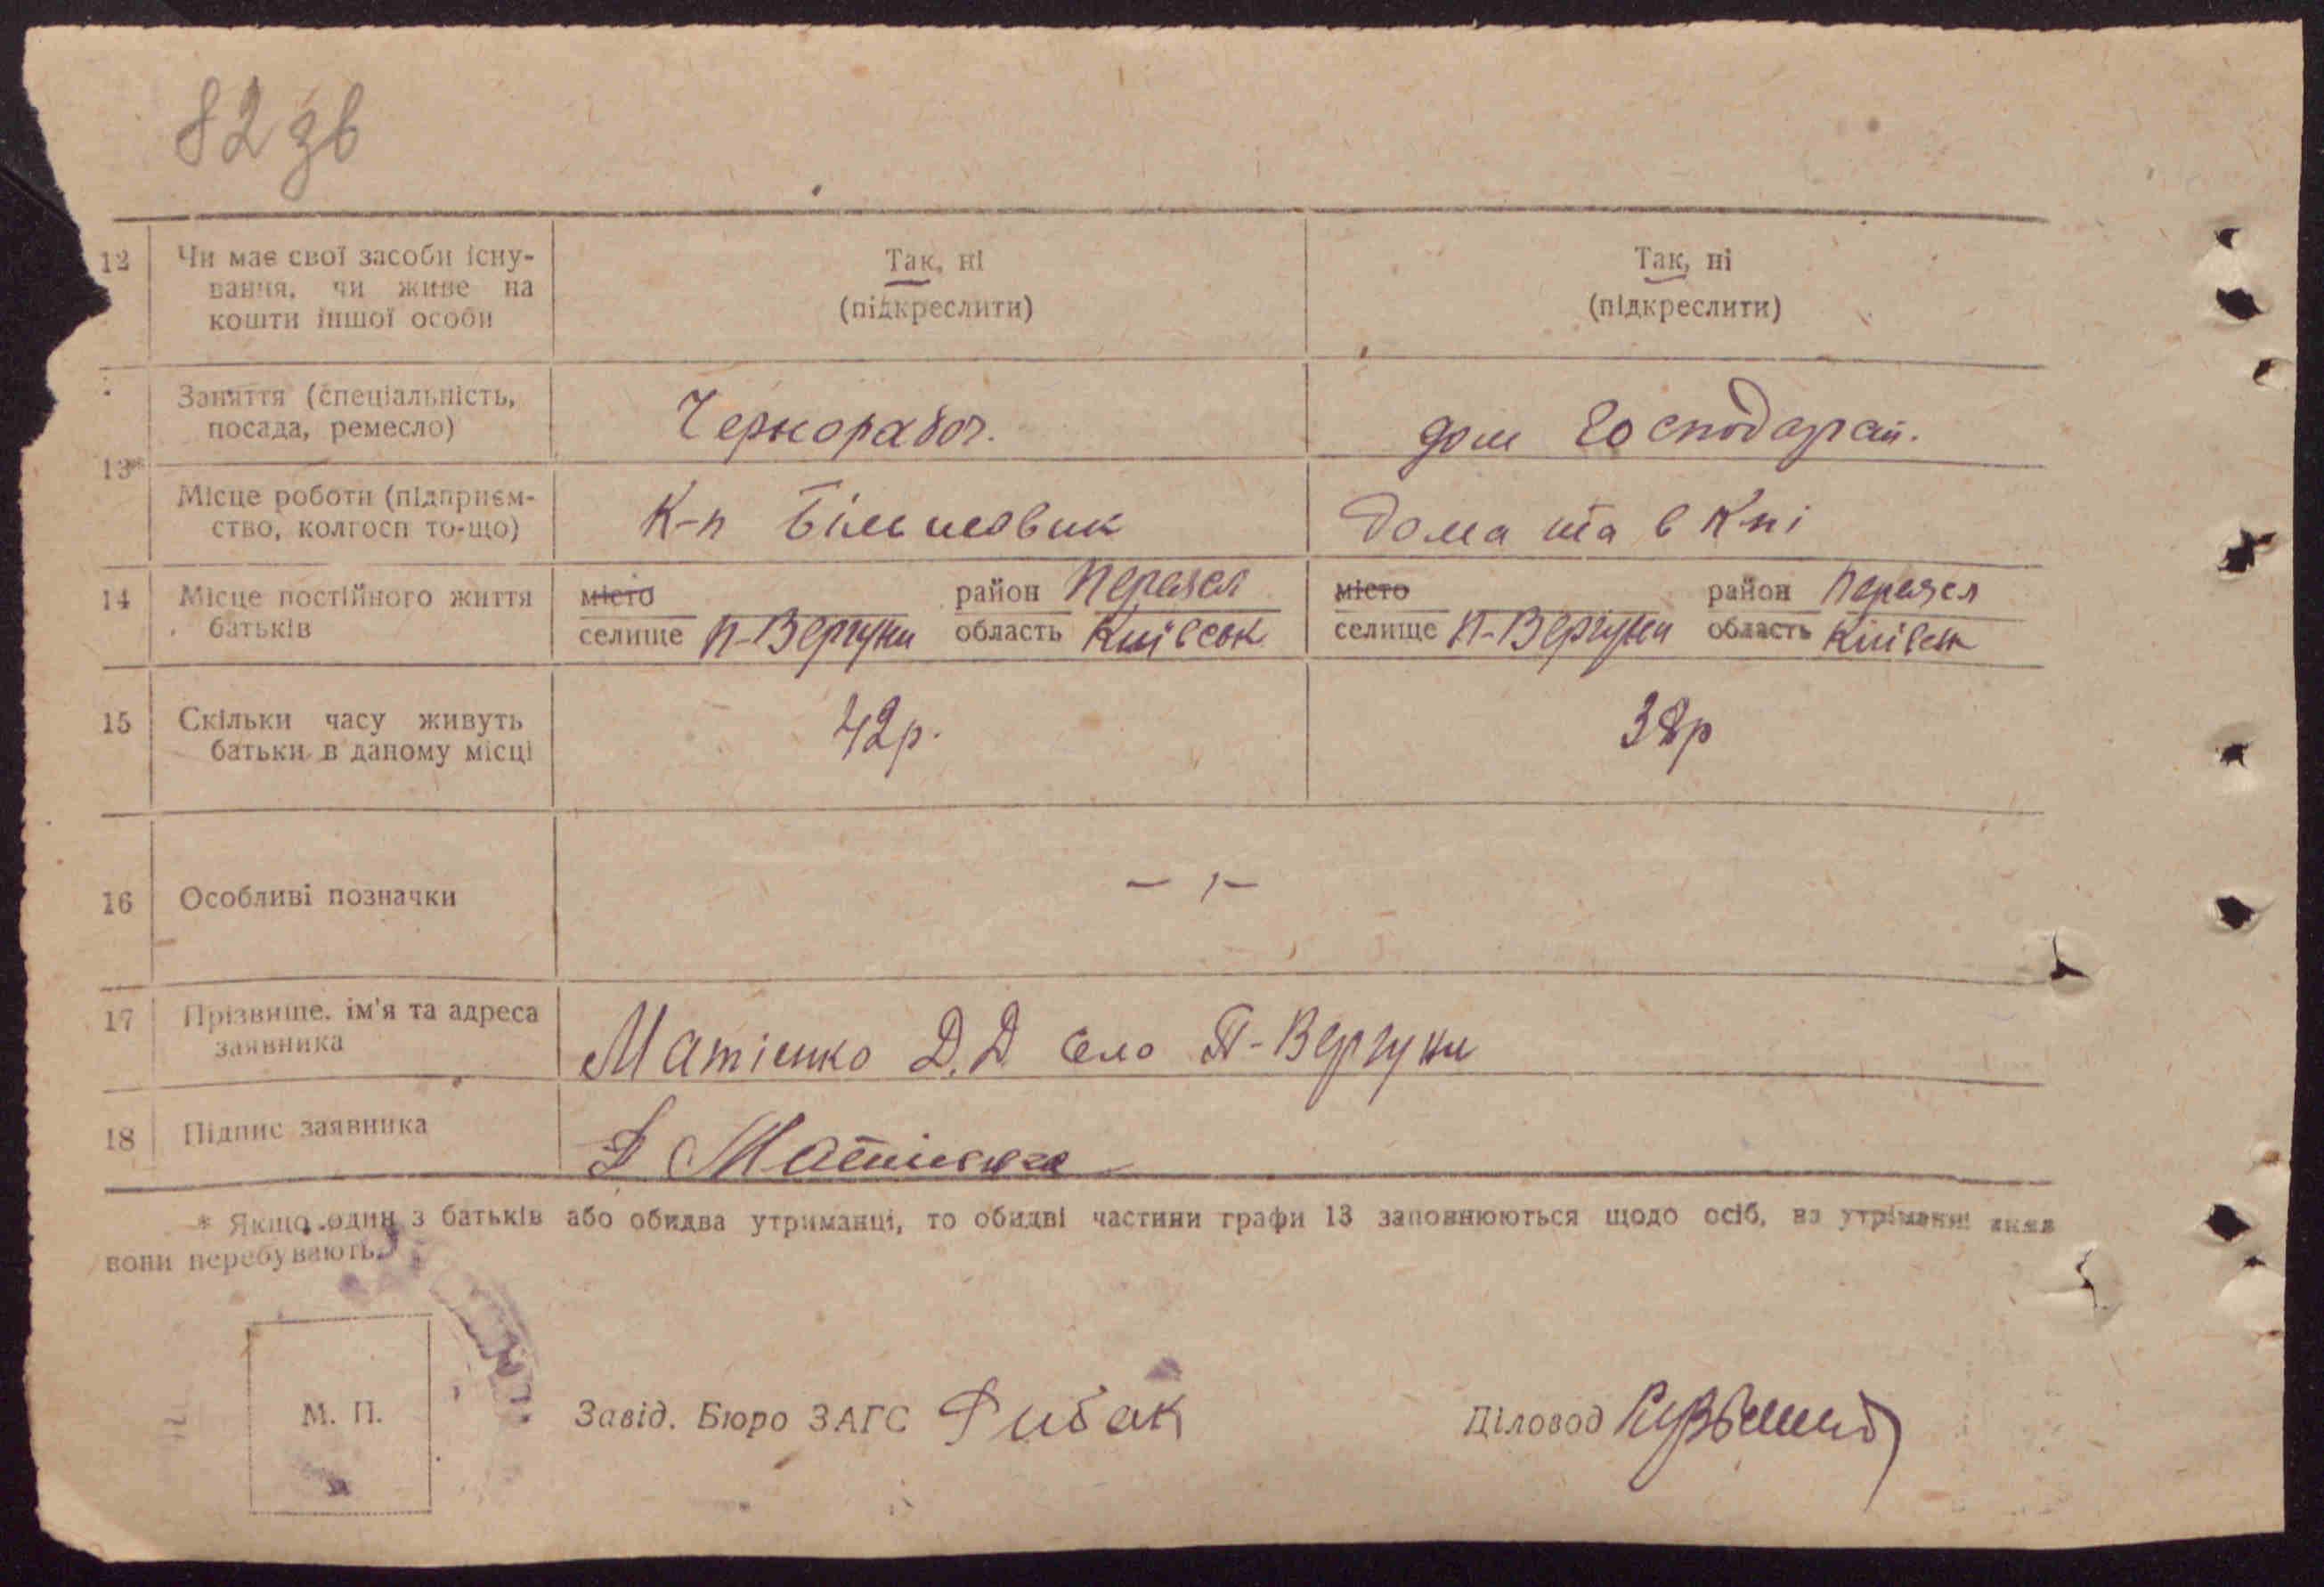 82 зв
12 Чи має свої засоби існу-
вання, чи живе на
кошти іншої особи
Так, ні
(підкреслити)
Так, ні
(підкреслити)
13*
Заняття (спеціальність,
посада, ремесло)
Чернорабоч.
дом господарст.
Місце роботи (підприєм-
ство, колгосп то-що)
К-п Більшовик
Дома та в К-пі
14 Місце постійного життя
батьків
місто район Переясл
селище П-Вергуни область Київськ
місто район Переясл
селище П-Вергуни область Київськ
15 Скільки часу живуть
батьки в даному місці
42р.
38р
16 Особливі позначки
— „—
17 Прізвище, ім'я та адреса
заявника
Матієнко Д.Д село П-Вергуни
18 Підпис заявника
Д Матієнко
* Якщо один з батьків або обидва утриманці, то обидві частини графи 13 заповнюються щодо осіб, на утриманні яких
вони перебувають.
М. П.
Завід. Бюро ЗАГС Рибак
Діловод